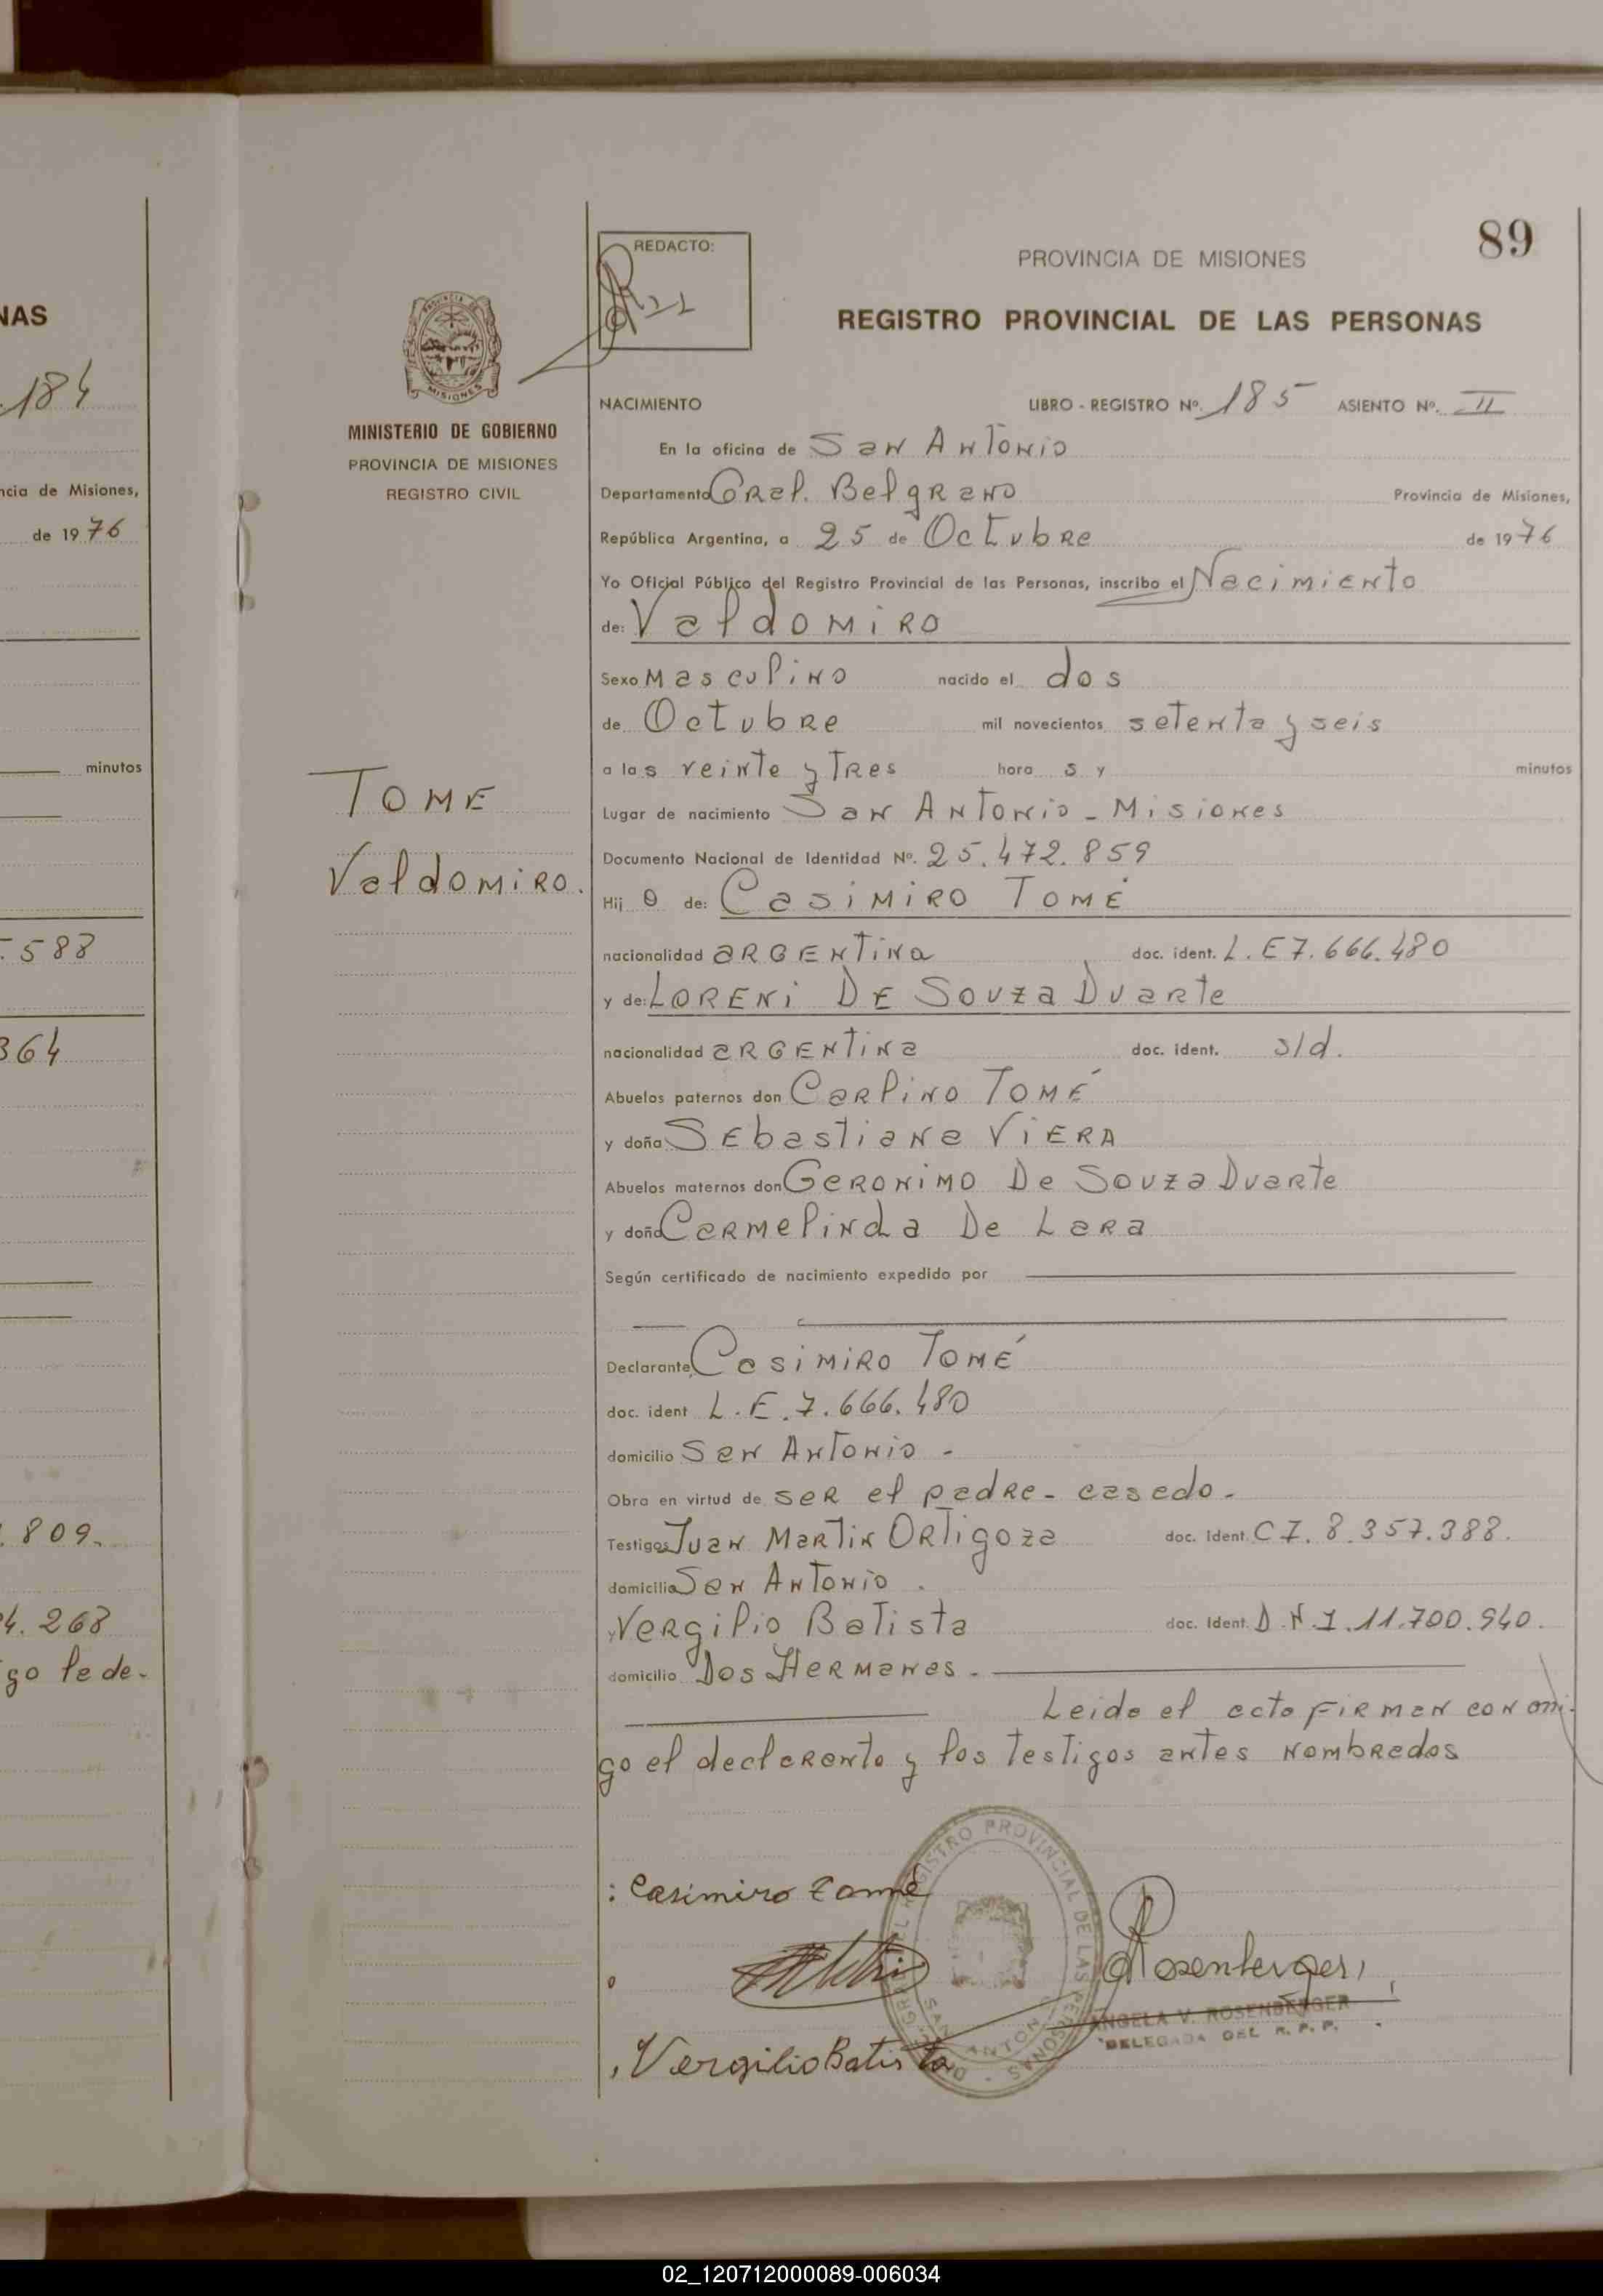 NAS
184
ncia de Misiones,
de 1976
minutos
588
364
809.
4.268
go le de-
REDACTO:
89
PROVINCIA DE MISIONES
REGISTRO PROVINCIAL DE LAS PERSONAS
MISIONES
MINISTERIO DE GOBIERNO
PROVINCIA DE MISIONES
REGISTRO CIVIL
NACIMIENTO LIBRO - REGISTRO Nº. 185 ASIENTO Nº. II
En la oficina de San Antonio
Departamento Gral. Belgrano Provincia de Misiones,
República Argentina, a 25 de Octubre de 1976
Yo Oficial Público del Registro Provincial de las Personas, inscribo el Nacimiento
de: Valdomiro
Sexo Masculino nacido el dos
de Octubre mil novecientos setenta y seis
a las veinte y tres hora s y minutos
TOME
Valdomiro.
Lugar de nacimiento San Antonio - Misiones
Documento Nacional de Identidad Nº. 25.472.859
Hij o de: Casimiro Tomé
nacionalidad argentina doc. ident. L.E 7.666.480
y de: Loreni De Souza Duarte
nacionalidad argentina doc. ident. s/d.
Abuelos paternos don Carlino Tomé
y doña Sebastiana Viera
Abuelos maternos don Geronimo De Souza Duarte
y doña Carmelinda De Lara
Según certificado de nacimiento expedido por
Declarante, Casimiro Tomé
doc. ident L.E. 7.666.480
domicilio San Antonio -
Obra en virtud de ser el padre - casado -
Testigos Juan Martin Ortigoza doc. ident. C I. 8.357.388.
domicilio San Antonio .
y Vergilio Batista doc. ident. D.N.I. 11.700.940.
domicilio Dos Hermanas -
Leida el acta firman con mi-
go el declarante y los testigos antes nombrados
: Casimiro Tomé
Rosenberger
ANGELA V. ROSENBERGER
DELEGADA DEL R. P. P.
Vergilio Batista
REGISTRO PROVINCIAL DE LAS PERSONAS
SAN ANTONIO
02_120712000089-006034